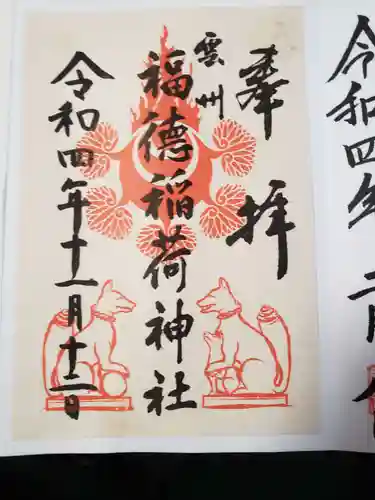 奉拝
雲州
福徳稲荷神社
令和四年十一月十二日
令和四年